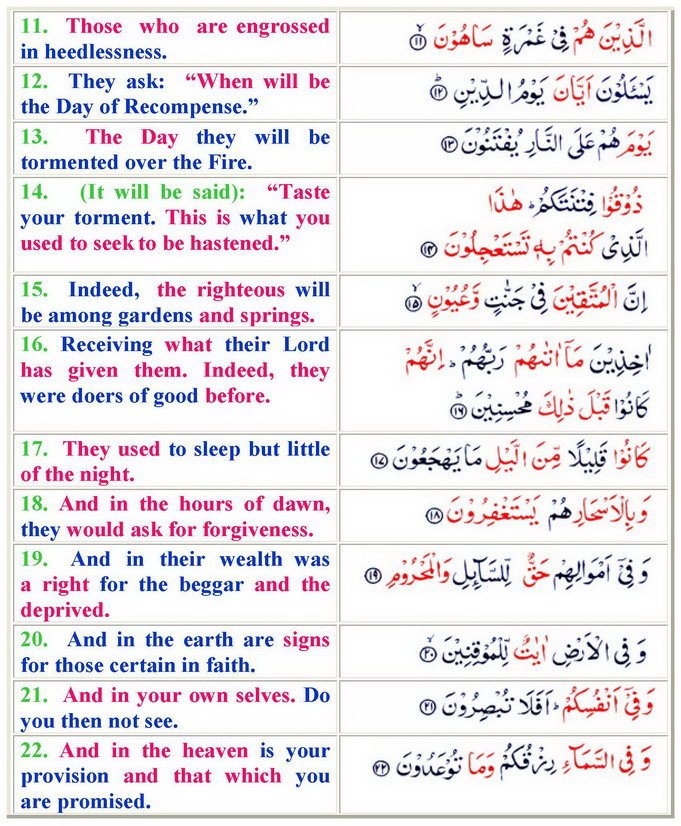 11. Those who are engrossed
in heedlessness.
الَّذِيْنَ هُمْ فِيْ غَمْرَةٍ سَاهُوْنَ ۙ﴿۱۱﴾
12. They ask: “When will be
the Day of Recompense.”
يَسْـَٔلُوْنَ اَيَّانَ يَوْمُ الدِّيْنِ ؕ﴿۱۲﴾
13. The Day they will be
tormented over the Fire.
يَوْمَ هُمْ عَلَى النَّارِ يُفْتَنُوْنَ ﴿۱۳﴾
14. (It will be said): “Taste
your torment. This is what you
used to seek to be hastened.”
ذُوْقُوْا فِتْنَتَكُمْ ؕ هٰذَا
الَّذِيْ كُنْتُمْ بِهٖ تَسْتَعْجِلُوْنَ ﴿۱۴﴾
15. Indeed, the righteous will
be among gardens and springs.
اِنَّ الْمُتَّقِيْنَ فِيْ جَنّٰتٍ وَّعُيُوْنٍ ۙ﴿۱۵﴾
16. Receiving what their Lord
has given them. Indeed, they
were doers of good before.
اٰخِذِيْنَ مَاۤ اٰتٰىهُمْ رَبُّهُمْ ؕ اِنَّهُمْ
كَانُوْا قَبْلَ ذٰلِكَ مُحْسِنِيْنَ ؕ﴿۱۶﴾
17. They used to sleep but little
of the night.
كَانُوْا قَلِيْلًا مِّنَ الَّيْلِ مَا يَهْجَعُوْنَ ﴿۱۷﴾
18. And in the hours of dawn,
they would ask for forgiveness.
وَبِالْاَسْحَارِ هُمْ يَسْتَغْفِرُوْنَ ﴿۱۸﴾
19. And in their wealth was
a right for the beggar and the
deprived.
وَ فِيْۤ اَمْوَالِهِمْ حَقٌّ لِّلسَّآىِٕلِ وَالْمَحْرُوْمِ ﴿۱۹﴾
20. And in the earth are signs
for those certain in faith.
وَ فِي الْاَرْضِ اٰيٰتٌ لِّلْمُوْقِنِيْنَ ۙ﴿۲۰﴾
21. And in your own selves. Do
you then not see.
وَ فِيْۤ اَنْفُسِكُمْ ؕ اَفَلَا تُبْصِرُوْنَ ﴿۲۱﴾
22. And in the heaven is your
provision and that which you
are promised.
وَ فِي السَّمَآءِ رِزْقُكُمْ وَمَا تُوْعَدُوْنَ ﴿۲۲﴾